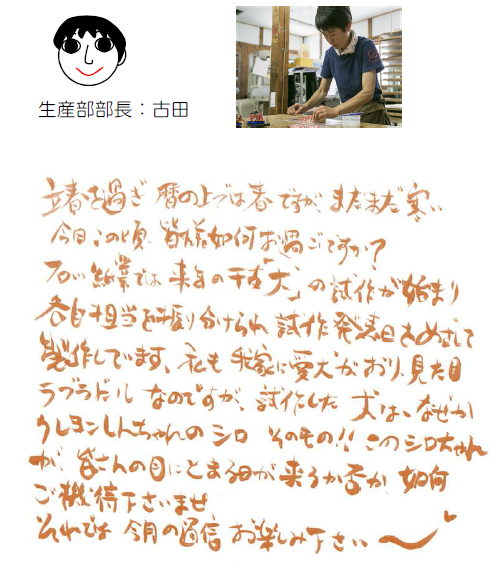 生産部部長：古田
立春を過ぎ 暦の上では春ですが、まだまだ寒い
今日この頃、皆様如何お過ごですか?
石川紙業では 来年の干支「犬」の試作が始まり
各自担当を振り分けられ、試作発表日をめざして
製作しています、私も 我家に愛犬がおり、見た目
ラブラドール なのですが、試作した 犬は、なぜか
クレヨンしんちゃんの シロ そのもの!! このシロちゃん
が、皆さんの目にとまる日が 来るか否か、如何
ご機待下さいませ
それでは 今月の通信 お楽しみ下さい